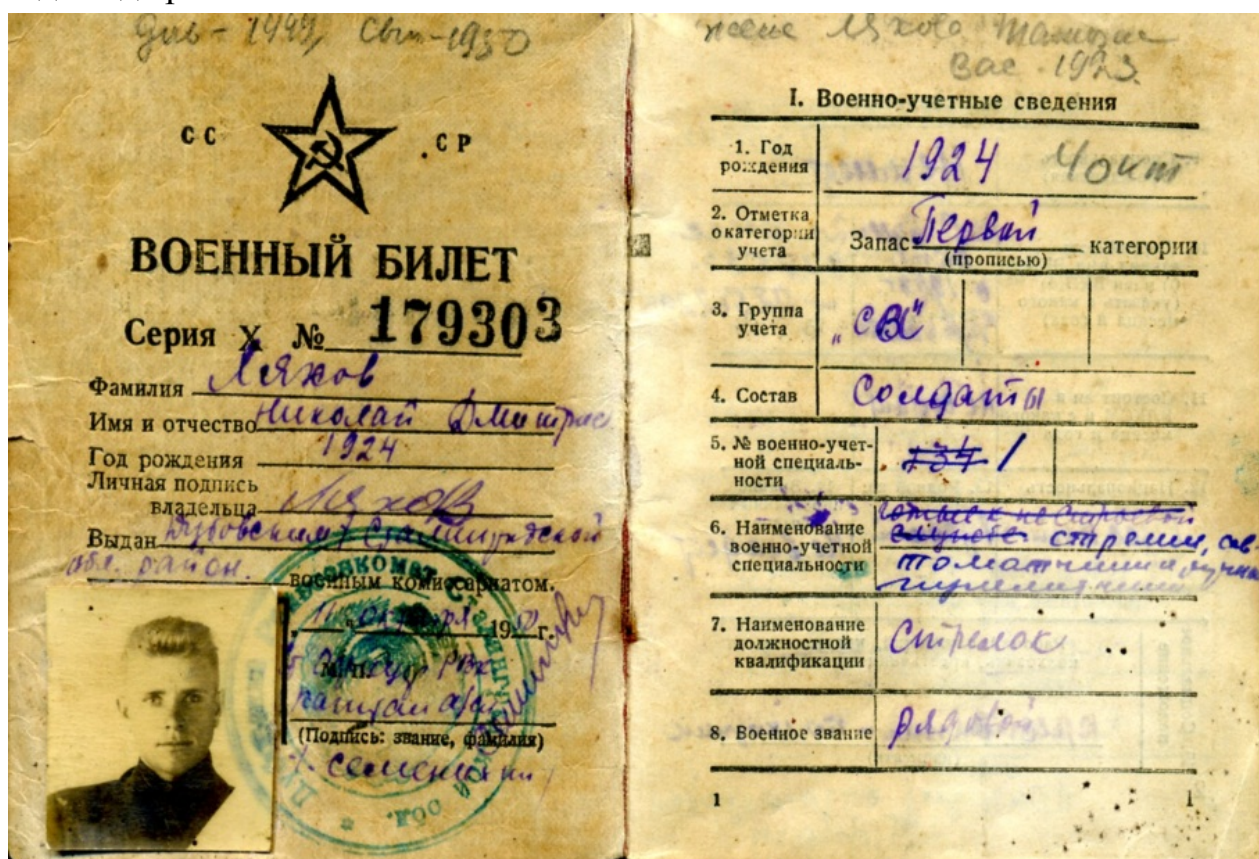 1949, 1950
жене Ляхова
Вас. 1923.
СС СР
ВОЕННЫЙ БИЛЕТ
Серия X № 179303
Фамилия Ляхов
Имя и отчество Николай Дмитрие
Год рождения 1924
Личная подпись
владельца Ляхов
Выдан Дубовским Сталинградской
обл. район.
военным комиссариатом.
19 г.
М.П.
капитан
(Подпись: звание, фамилия)
I. Военно-учетные сведения
1. Год
рождения
1924 4 окт
2. Отметка
о категории
учета
Запас Первой категории
(прописью)
3. Группа
учета
„СА"
4. Состав
Солдаты
5. № военно-учет-
ной специаль-
ности
134 1
6. Наименование
военно-учетной
специальности
годные к нестроевой
службе
7. Наименование
должностной
квалификации
Стрелок
8. Военное звание
рядовой
1 1